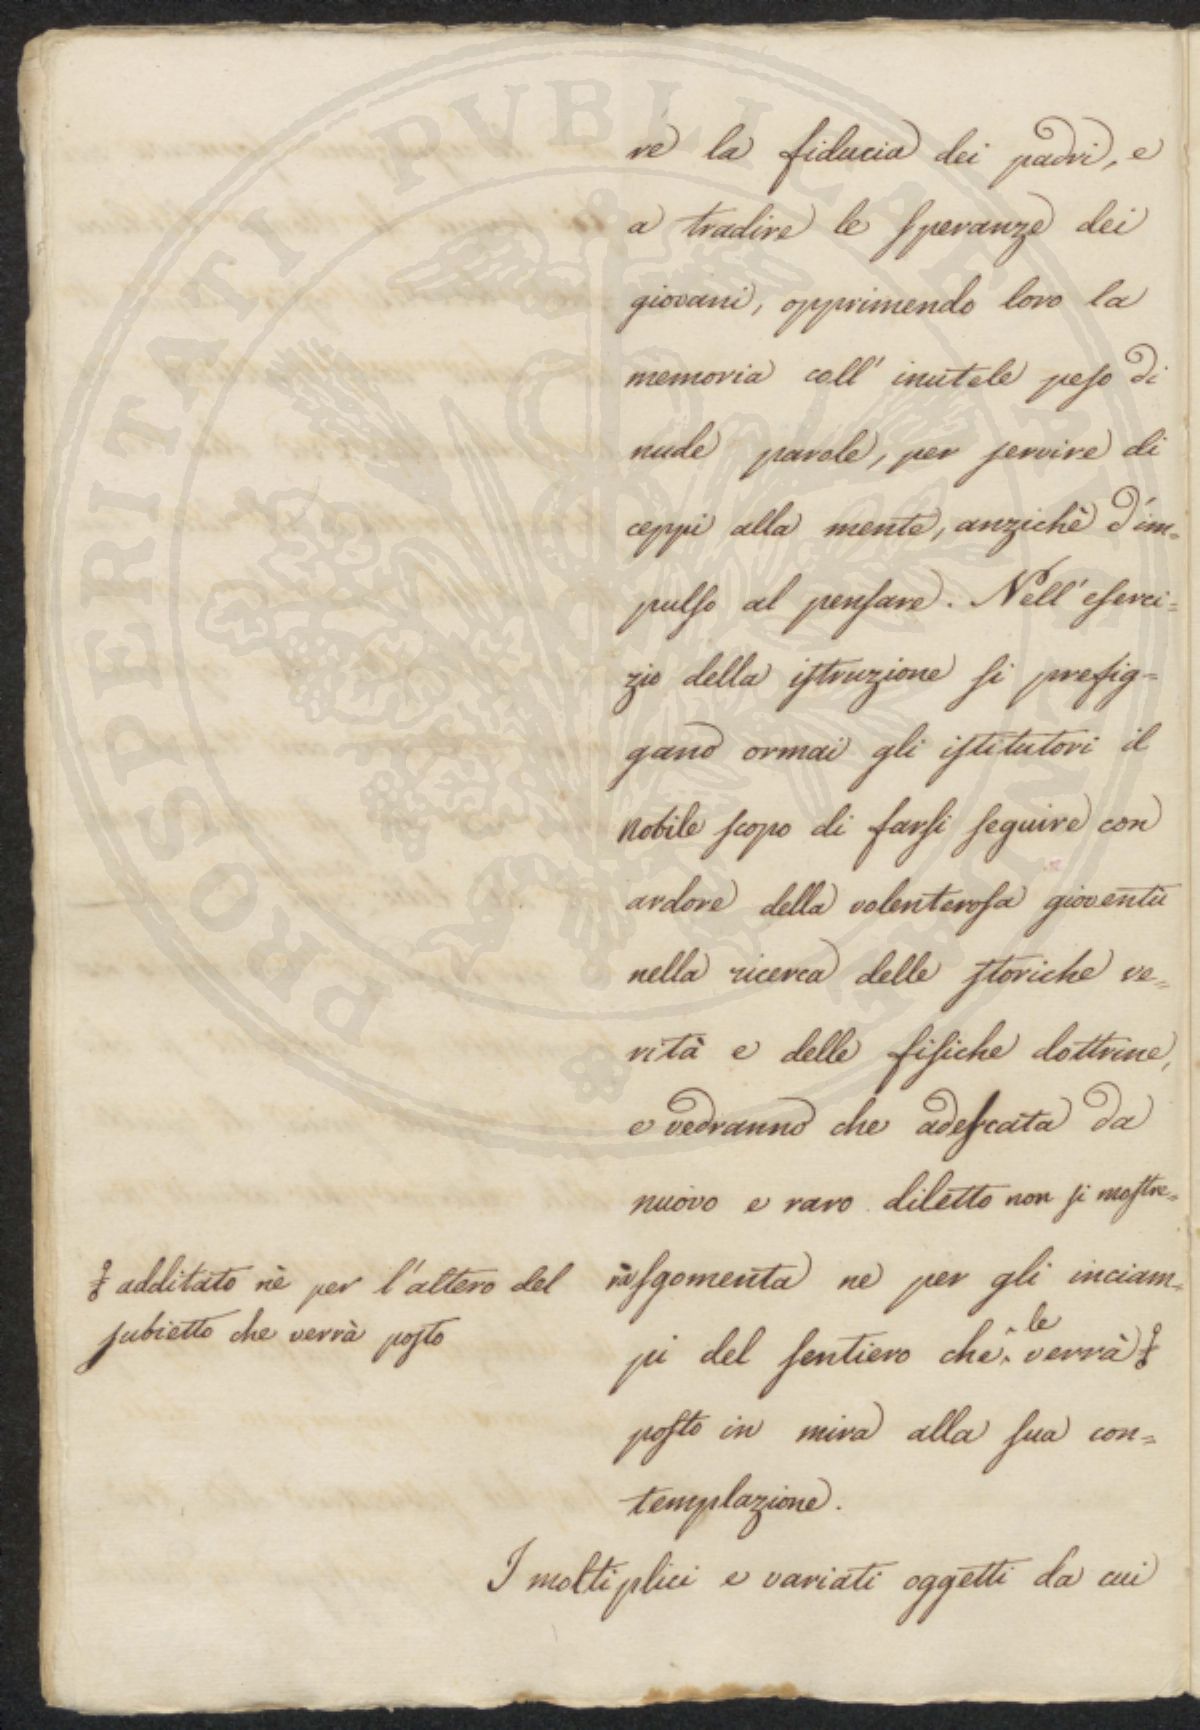 re la fiducia dei padri, e
a tradire le speranze dei
giovani, opprimendo loro la
memoria coll' inutele peso di
nude parole, per servire di
ceppi alla mente, anzichè d'im=
pulso al pensare. Nell'eserci=
zio della istruzione si prefig=
gano ormai gli istitutori il
nobile scopo di farsi seguire con
ardore della volenterosa gioventù
nella ricerca delle storiche ve=
rità e delle fisiche dottrine,
e vedranno che adescata da
nuovo e raro diletto non si mostre=
rà sgomenta ne per gli inciam=
pi del sentiero che le verrà
posto in mira alla sua con=
templazione.
I moltiplici e variati oggetti da cui
additato nè per l'altero del
subietto che verrà posto
PROSPERITATI PVBLICAE